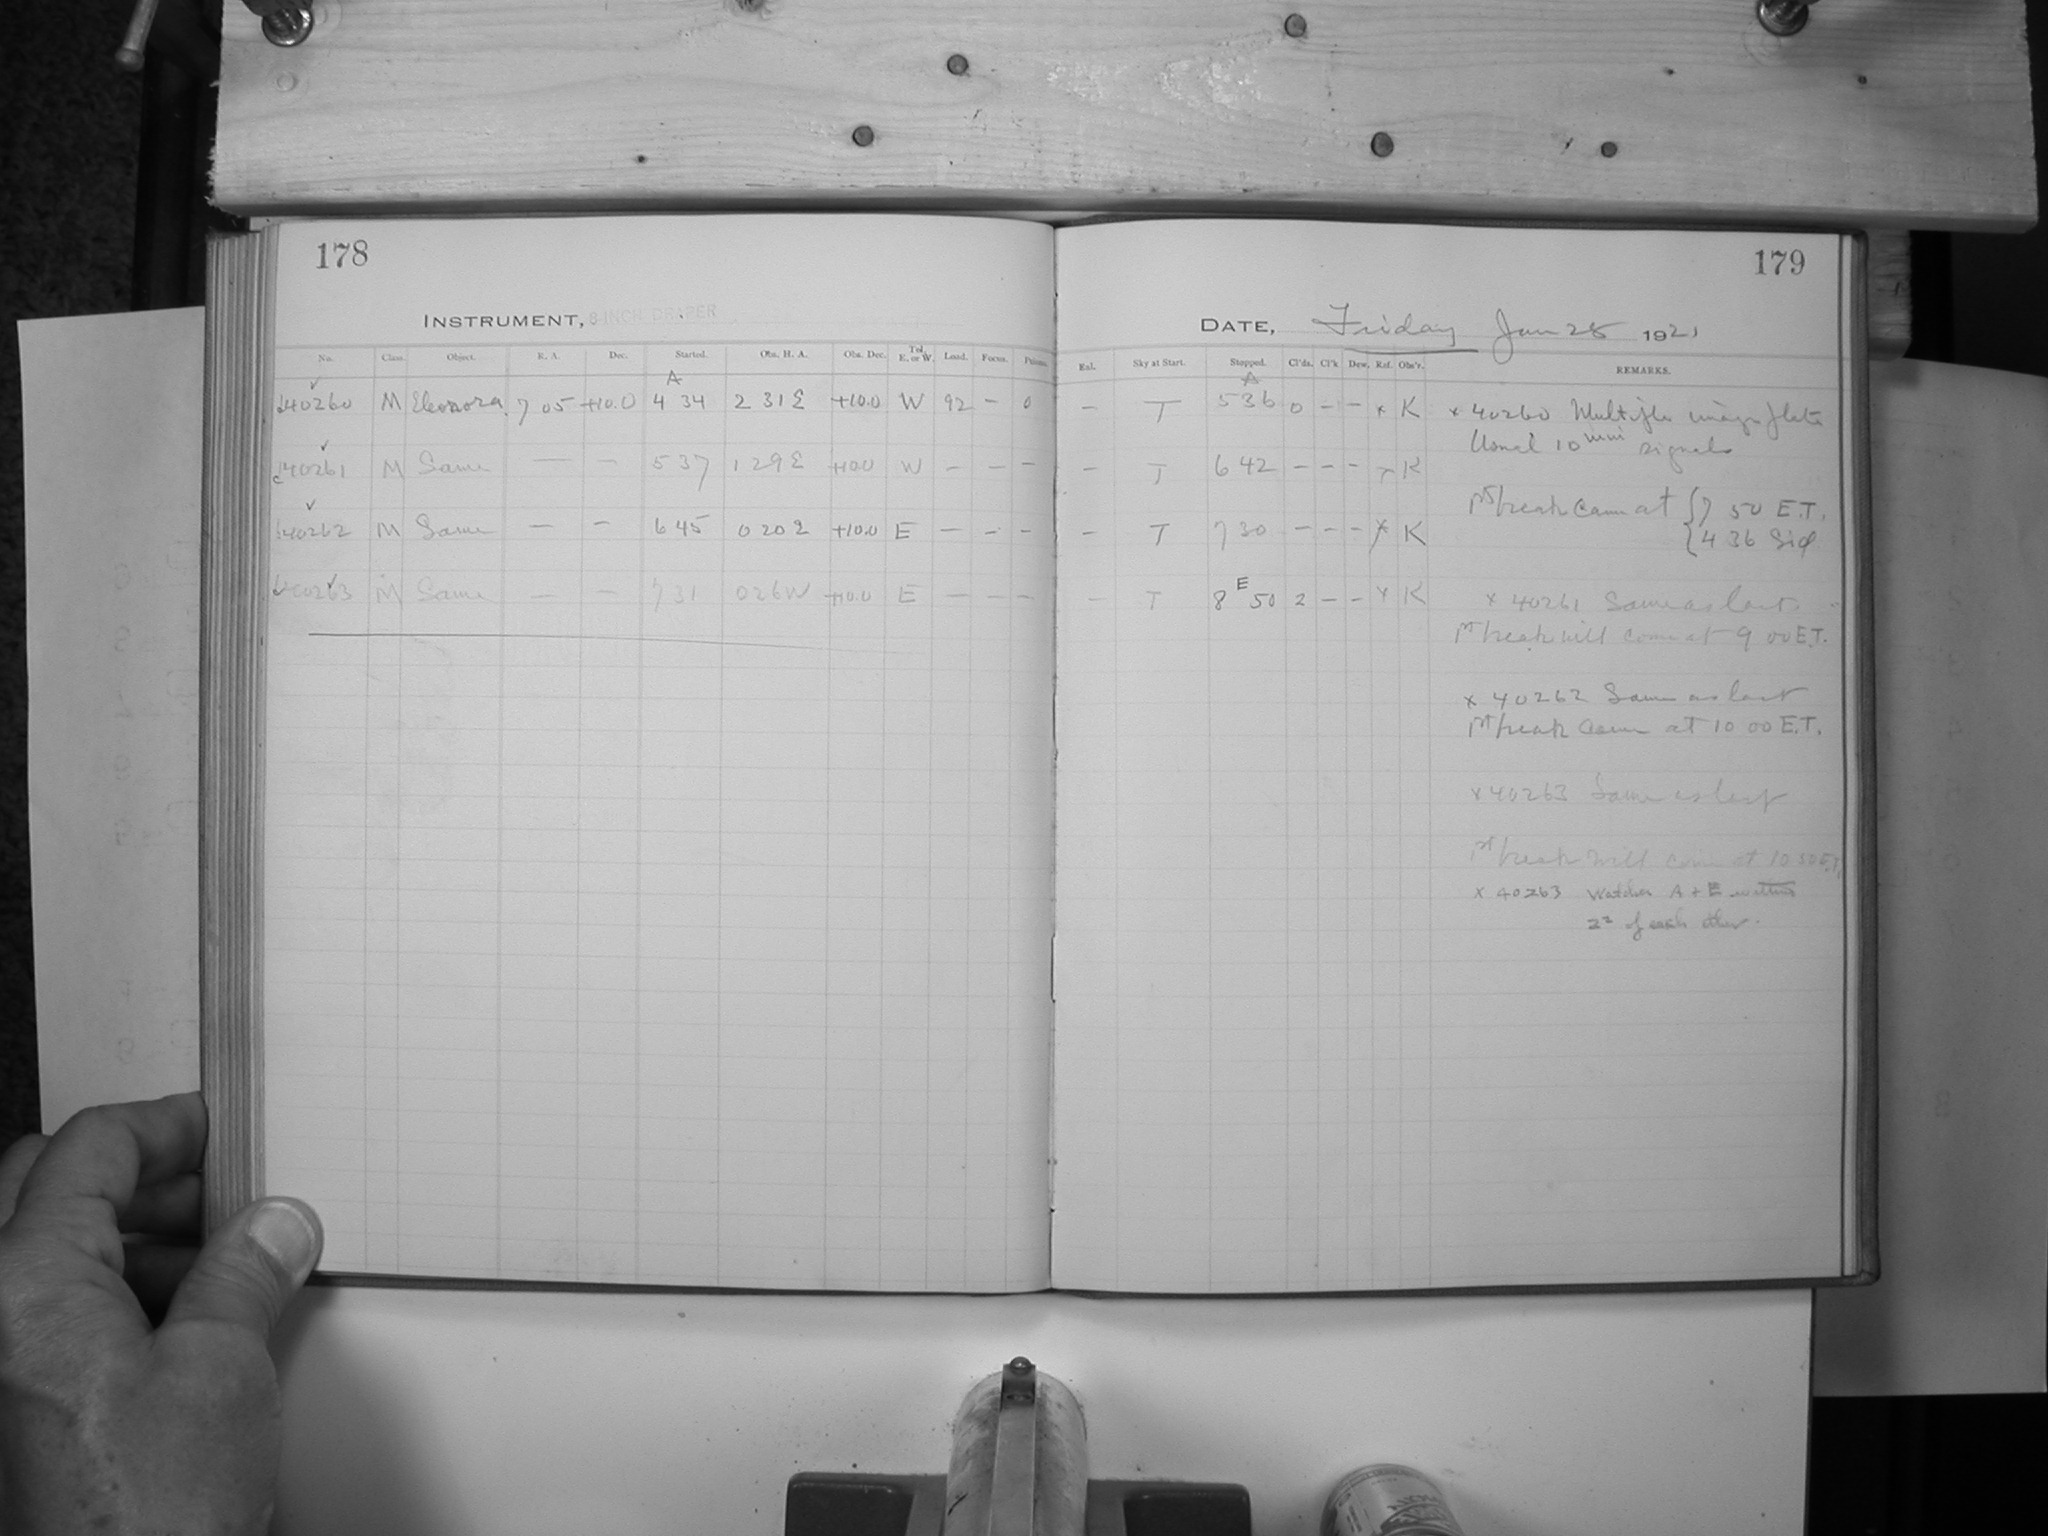 178
INSTRUMENT, 8-INCH DRAPER
No. Class. Object. R. A. Dec. Started. Obs. H. A. Obs. Dec. Tel. E. or W. Load. Focus.
A
J40260 M Eleonora 7 05 +10.0 4 34 2 31 E +10.0 W 92 - 0
J40261 M Same — — 5 37 1 29 E +10.0 W - - -
J40262 M Same — — 6 45 0 20 E +10.0 E - - -
J40263 M Same — — 7 31 0 26 W +10.0 E - - -
179
DATE, Friday Jan 28 1921
Sky at Start. Stopped. Cl'ds. Cl'k Dew. Ref. Obs'r. REMARKS.
A
- T 5 36 0 - - x K
- T 6 42 - - - x K
- T 7 30 - - - x K
- T 8 E 50 2 - - x K
x 40260 Multiple image plate
Usual 10 min signals
1st break came at { 7 50 E.T.
{ 4 36 Sid
x 40261 Same as last
1st break will come at 9 00 E.T.
x 40262 Same as last
1st break came at 10 00 E.T.
x 40263 Same as last
1st break will come at 10 50 E.T.
x 40263 Watches A + E within
2s of each other.